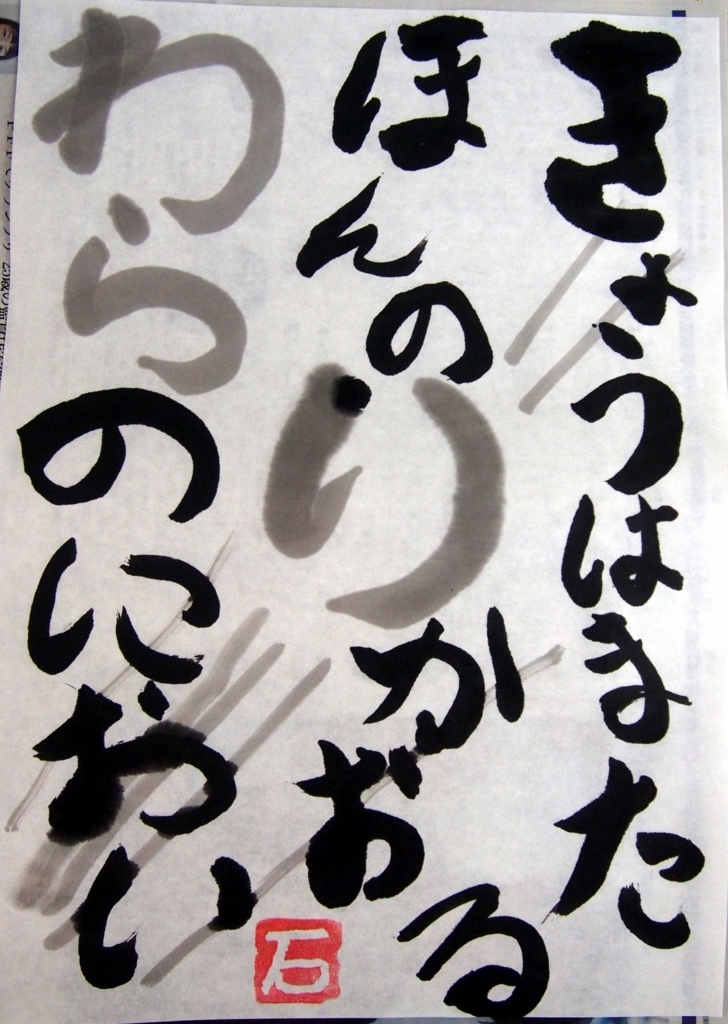 きょうはまた
ほんのりかおる
わらのにおい
石